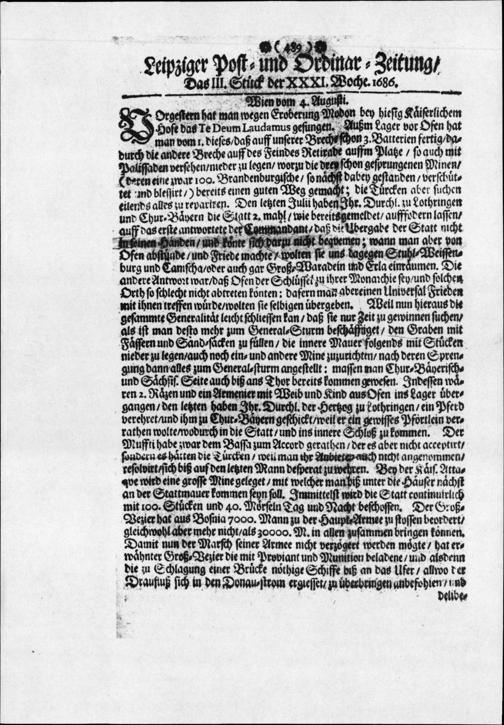 ( 489 )
Leipziger Post- und Ordinar-Zeitung/
Das III. Stück der XXXI. Woche. 1686.
Wien vom 4. Augusti.
VOrgestern hat man wegen Eroberung Modon bey hiesig Käiserlichem
Hofe das Te Deum Laudamus gesungen. Außm Lager vor Ofen hat
man vom 1. dieses/ daß auff unserer Breche schon 3. Batterien fertig/da-
durch die andere Breche auff des Feindes Retirade auffm Platze/ so auch mit
Palissaden versehen/nieder zu legen/ worzu die drey schon gesprungenen Minen/
(deren eine zwar 100. Brandenburgische/ so nächst dabey gestanden/ verschüt-
tet und blesirt/) bereits einen guten Weg gemacht; die Türcken aber suchen
eilends alles zu repariren. Den letzten Julii haben Ihr. Durchl. zu Lothringen
und Chur-Bäyern die Statt 2. mahl/ wie bereits gemeldet/ aufffodern lassen/
auff das erste antwortete der Commandant/ daß die Ubergabe der Statt nicht
in seinen Händen/ und könte sich darzu nicht bequemen; wann man aber von
Ofen abstünde/ und Friede machte/ wolten sie uns dagegen Stuhl-Weissen-
burg und Canischa/oder auch gar Groß-Waradein und Erla einräumen. Die
andere Antwort war/daß Ofen der Schlüssel zu ihrer Monarchie sey/und solchen
Orth so schlecht nicht abtreten könten; dafern man aber einen Universal Frieden
mit ihnen treffen würde/wolten sie selbigen übergeben. Weil nun hieraus die
gesammte Generalität leicht schliessen kan/ daß sie nur Zeit zu gewinnen suchen/
als ist man desto mehr zum General-Sturm beschäfftiget/ den Graben mit
Fässern und Sand-säcken zu füllen/ die innere Mauer folgends mit Stücken
nieder zu legen/auch noch ein- und andere Mine zuzurichten/ nach deren Spren-
gung dann alles zum General-sturm angestellt: massen man Chur-Bäyerisch-
und Sächsis. Seite auch biß ans Thor bereits kommen gewesen. Indessen wä-
ren 2. Räzen und ein Armenier mit Weib und Kind aus Ofen ins Lager über-
gangen/ den letzten haben Ihr. Durchl. der Hertzog zu Lothringen/ ein Pferd
verehret/und ihm zu Chur-Bäyern geschickt/weil er ein gewisses Pförtlein ver-
rathen wolte/wodurch in die Statt/ und ins innere Schloß zu kommen. Der
Muffti habe zwar dem Bassa zum Accord gerathen/ der es aber nicht acceptirt/
sondern es hätten die Türcken/ weil man ihr Anbieten auch nicht angenommen/
resolvirt/sich biß auf den letzten Mann desperat zu wehren. Bey der Käis. Atta-
que wird eine grosse Mine geleget/ mit welcher man biß unter die Häuser nächst
an der Stattmauer kommen seyn soll. Immittelst wird die Statt continuirlich
mit 100. Stücken und 40. Mörseln Tag und Nacht beschossen. Der Groß-
Vezier hat aus Bosnia 7000. Mann zu der Haupt-Armee zu stossen beordert/
gleichwohl aber mehr nicht/als 30000. M. in allen zusammen bringen können.
Damit nun der Marsch seiner Armee nicht verzögert werden mögte/ hat er-
wähnter Groß-Vezier die mit Proviant und Munition beladene/ und alsdenn
die zu Schlagung einer Brücke nöthige Schiffe biß an das Ufer/ allwo der
Draufluß sich in den Donau-strom ergiesset/ zu überbringen anbefohlen/ und
delibe-